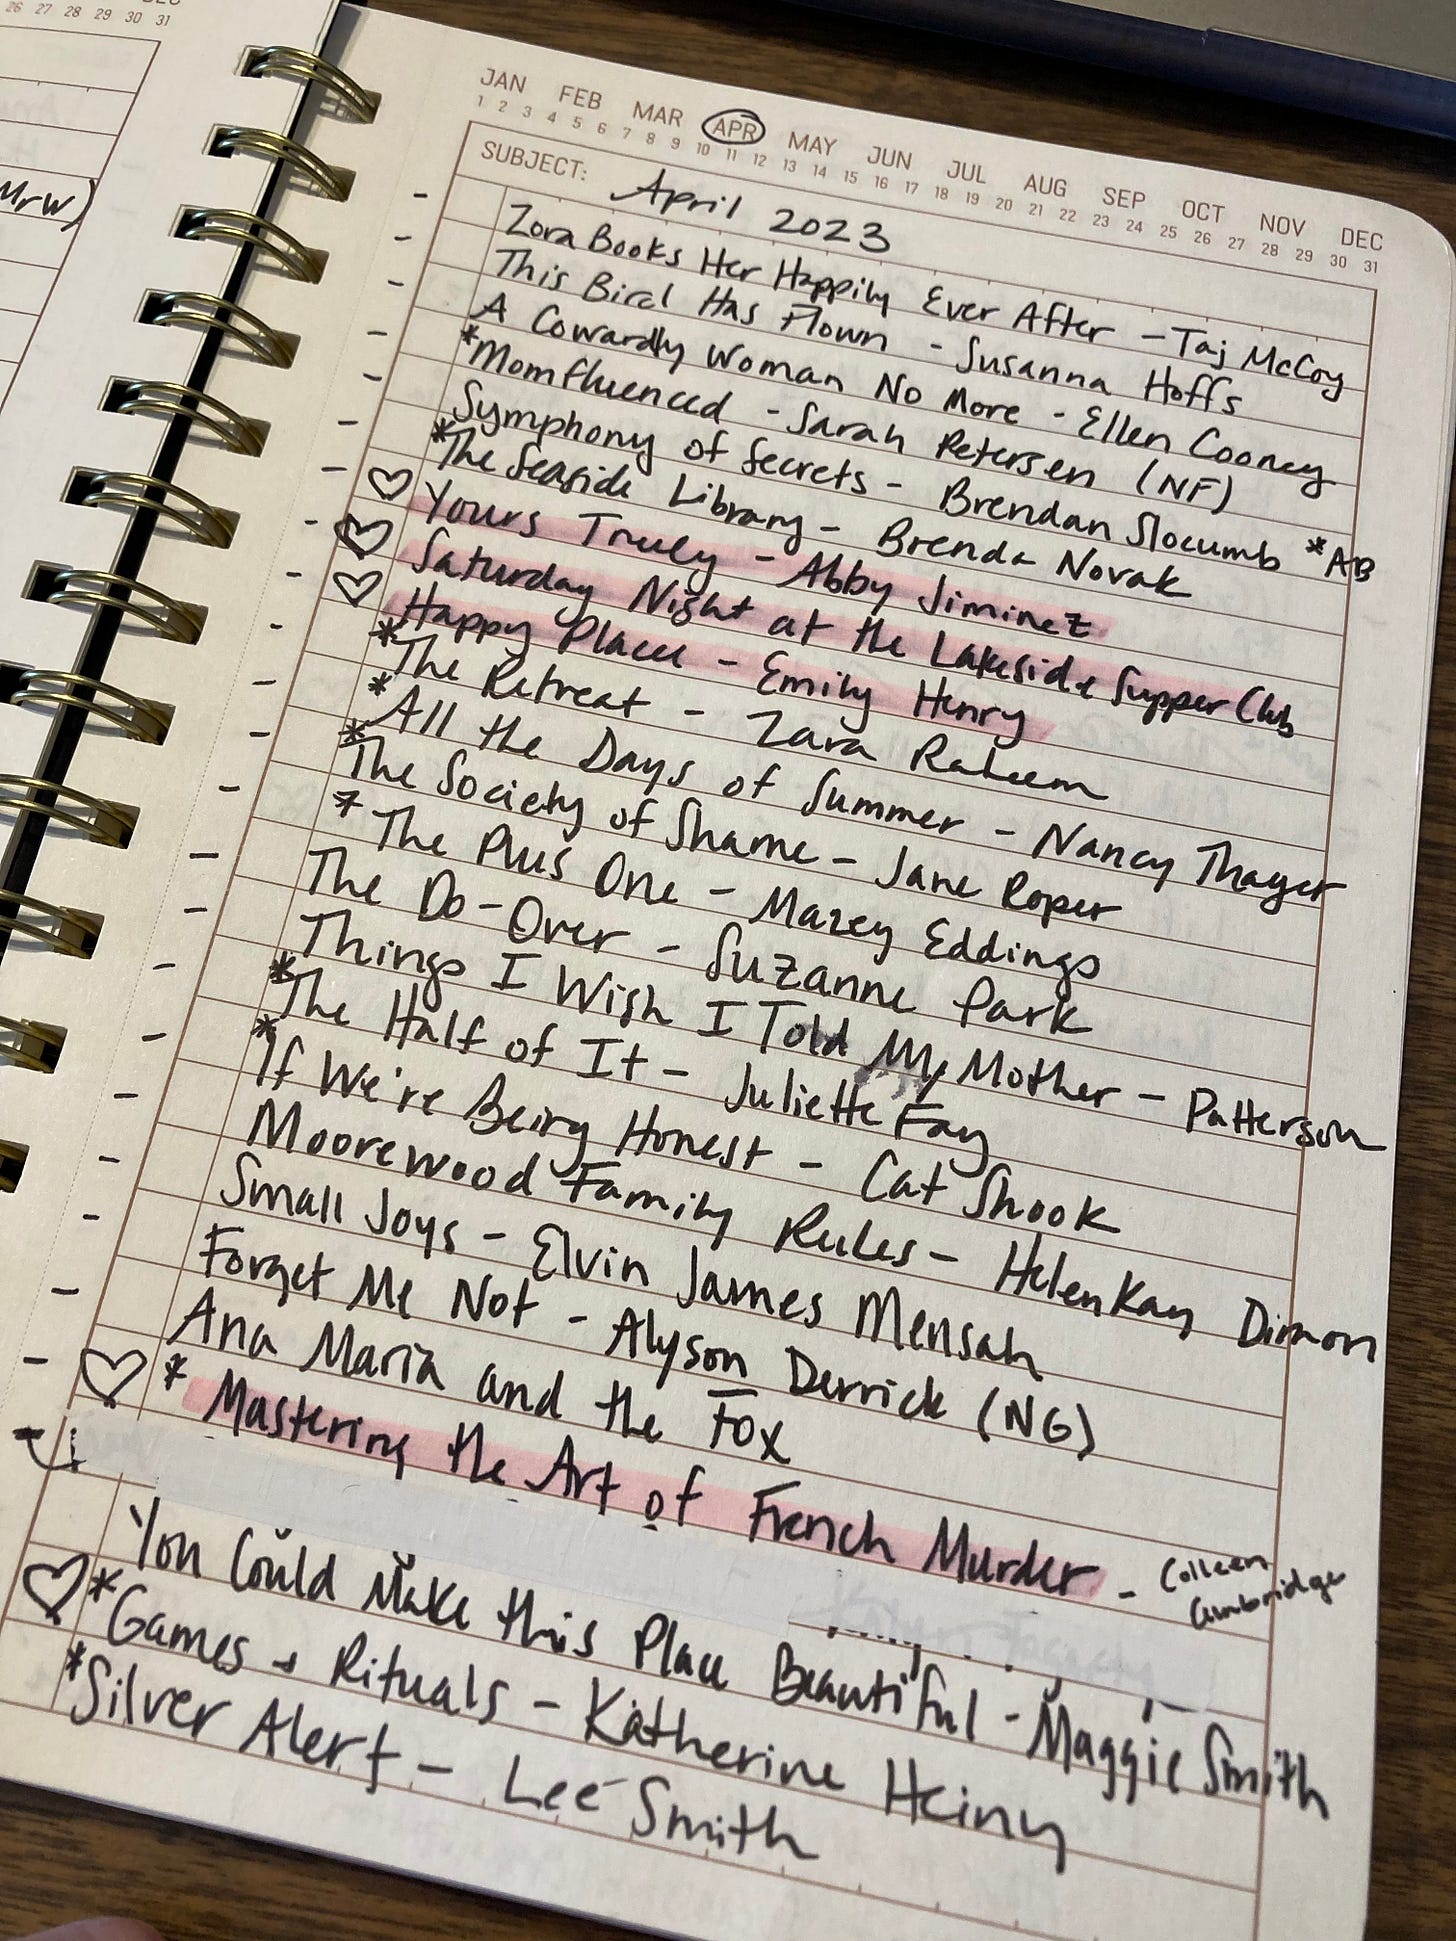 26 27 28 29 30 31
MrW)
JAN FEB MAR APR MAY JUN JUL AUG SEP OCT NOV DEC
1 2 3 4 5 6 7 8 9 10 11 12 13 14 15 16 17 18 19 20 21 22 23 24 25 26 27 28 29 30 31
SUBJECT: April 2023
Zora Books Her Happily Ever After - Taj McCoy
This Bird Has Flown - Susanna Hoffs
A Cowardly Woman No More - Ellen Cooney
*Momfluenced - Sarah Petersen (NF)
Symphony of Secrets - Brendan Slocumb *AB
*The Seaside Library - Brenda Novak
♡ Yours Truly - Abby Jiminez
♡ Saturday Night at the Lakeside Supper Club
♡ Happy Place - Emily Henry
*The Retreat - Zara Raheem
*All the Days of Summer - Nancy Thayer
*The Society of Shame - Jane Roper
* The Plus One - Mazey Eddings
The Do-Over - Suzanne Park
Things I Wish I Told My Mother - Patterson
*The Half of It - Juliette Fay
*If We're Being Honest - Cat Shook
Moorewood Family Rules - HelenKay Dimon
Small Joys - Elvin James Mensah
Forget Me Not - Alyson Derrick (NG)
Ana Maria and the Fox
♡ * Mastering the Art of French Murder - Colleen
Cambridge
You Could Make this Place Beautiful - Maggie Smith
♡ *Games + Rituals - Katherine Heiny
*Silver Alert - Lee Smith